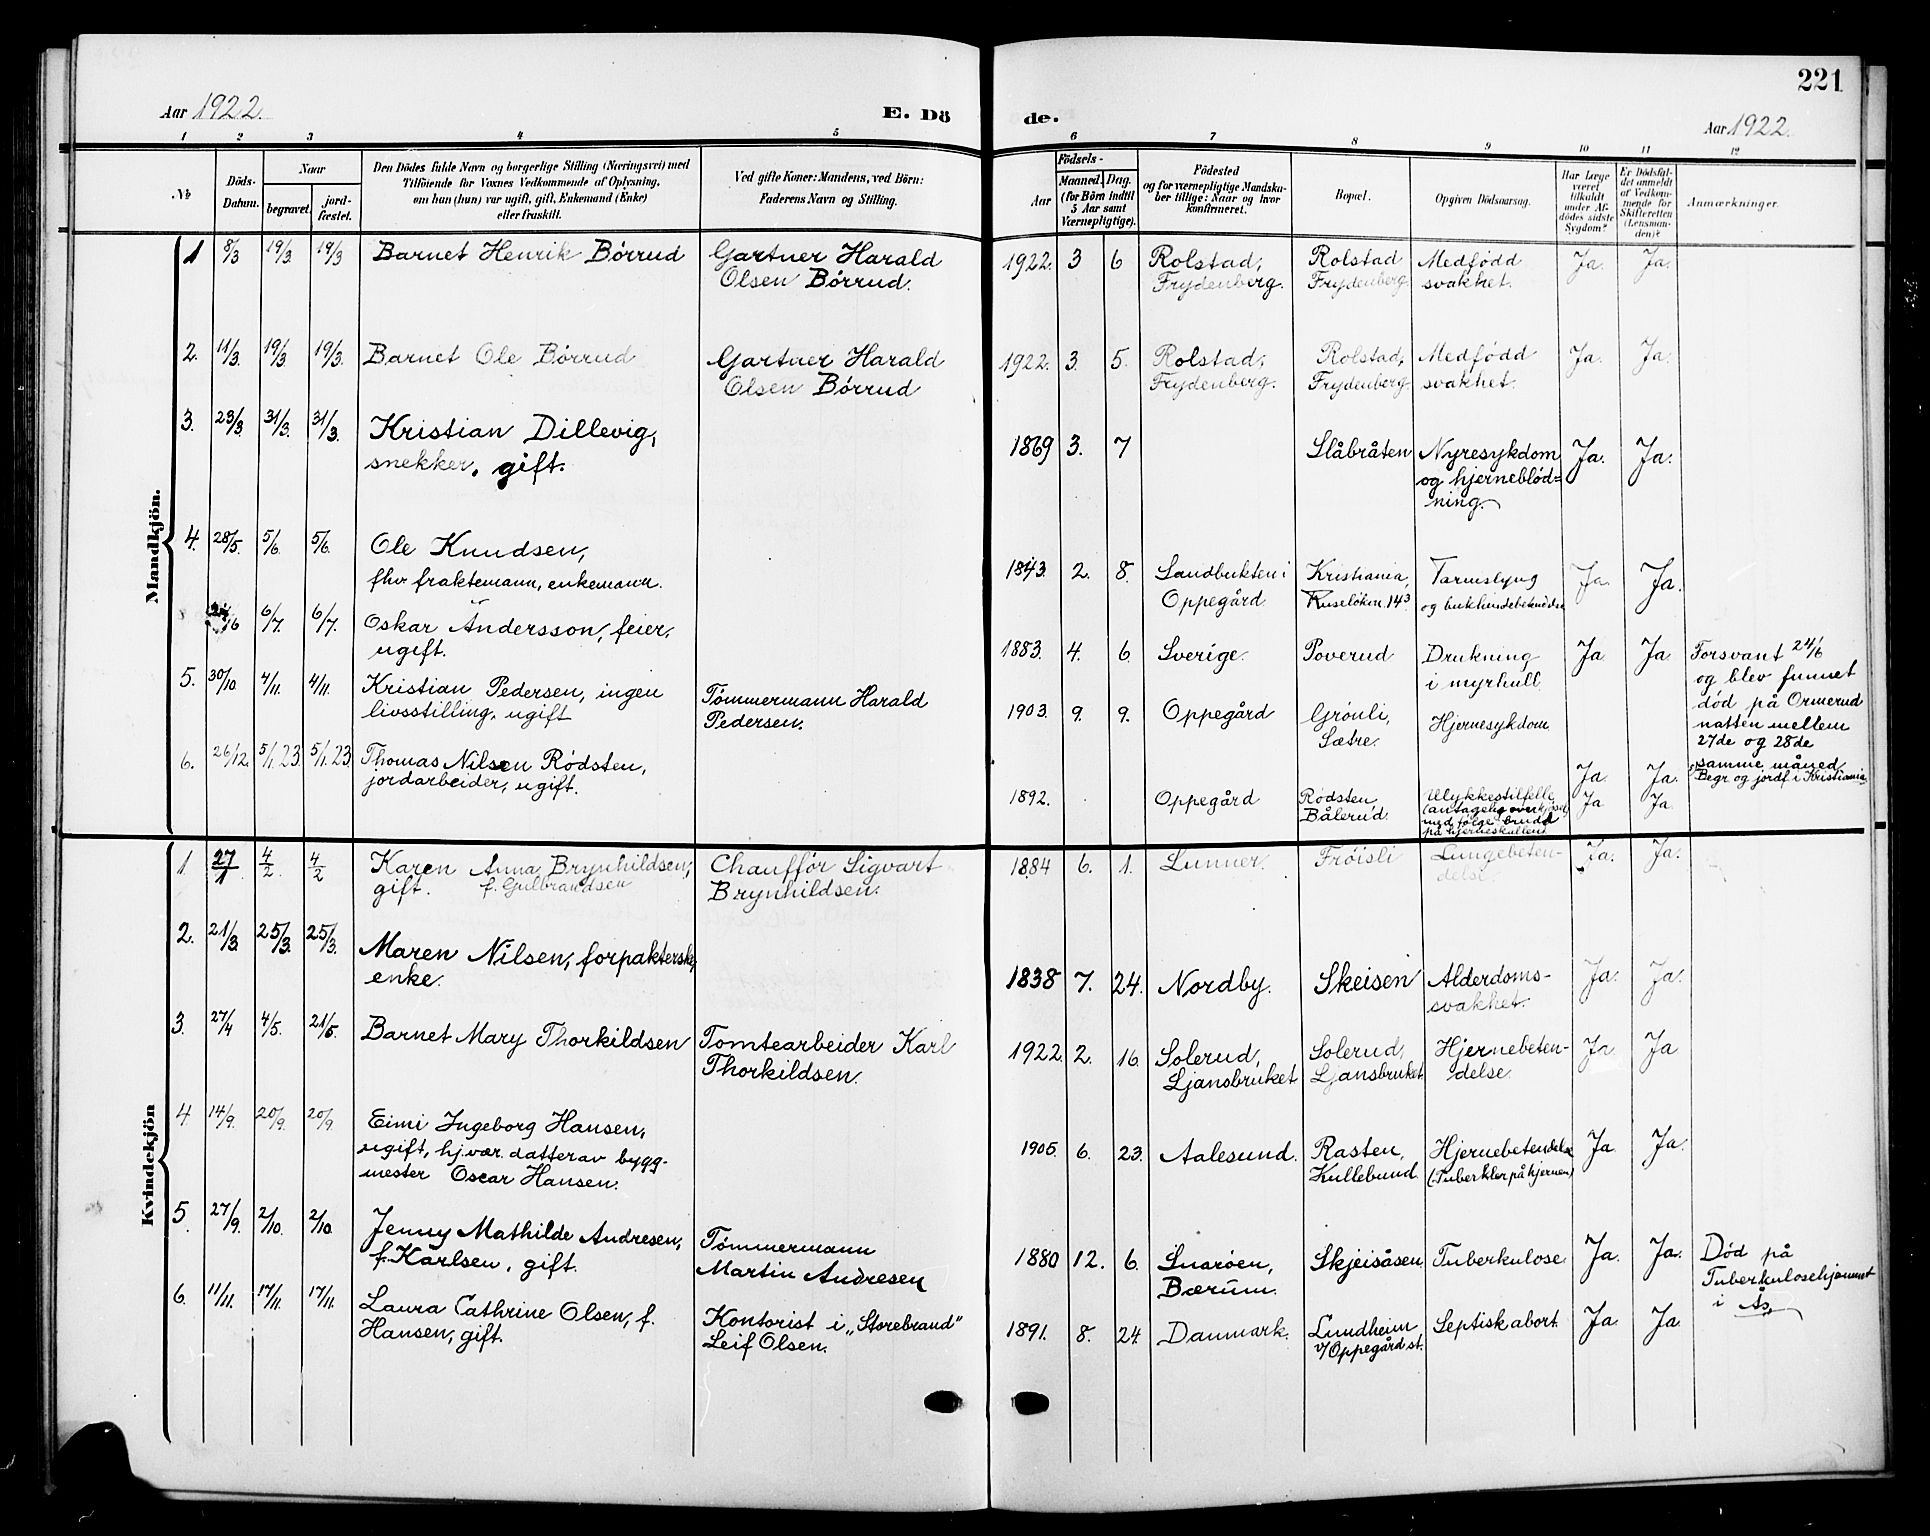 221
Aar 1922.
E. Dö de.
Aar 1922.
1 2 3 4 5 6 7 8 9 10 11 12
№
Döds-Datum.
Naar
begravet.
jord-fæstet.
Den Dödes fulde Navn og borgerlige Stilling (Næringsvei) med
Tilföiende for Voxnes Vedkommende af Oplysning,
om han (hun) var ugift, gift, Enkemand (Enke)
eller fraskilt.
Ved gifte Koner: Mandens, ved Börn:
Faderens Navn og Stilling.
Födsels-
Aar
Maaned. Dag.
(for Börn indtil
5 Aar samt
Værnepligtige).
Födested
og for værnepligtige Mandska-
ber tillige: Naar og hvor
konfirmeret.
Bopæl.
Opgiven Dödsaarsag.
Har Læge
været
tilkaldt
under Af-
dödes sidste
Sygdom?
Er Dödsfal-
det anmeldt
af Vedkom-
mende for
Skifteretten
(Lensman-
den)?
Anmærkninger.
Mandkjön.
1 8/3 19/3. 19/3 Barnet Henrik Børrud Gartner Harald 1922. 3 6 Rolstad, Rolstad Medfødd Ja. Ja.
Olsen Børrud. Frydenberg. Frydenberg. svakhet.
2. 11/3. 19/3. 19/3. Barnet Ole Børrud Gartner Harald 1922. 3. 5. Rolstad, Rolstad, Medfødd Ja. Ja.
Olsen Børrud Frydenberg. Frydenberg. svakhet.
3. 23/3. 31/3. 31/3. Kristian Dillevig, 1869 3. 7 Slåbråten Nyresykdom Ja. Ja.
snekker, gift. og hjerneblød=
ning.
4. 28/5. 5/6. 5/6. Ole Knudsen, 1843. 2. 8. Sandbukten i Kristiania, Tarmslyng Ja. Ja.
fhv fraktemann, enkemann. Oppegård Ruseløken. 143
6/7. 6/7. Oskar Andersson, feier, 1883. 4. 6. Sverige. Poverud Drukning Ja. Ja. Forsvant 24/6
ugift. i myrhull. og blev funnet
5. 30/10. 4/11. 4/11. Kristian Pedersen, ingen Tømmermann Harald 1903. 9. 9. Oppegård Grønli, Hjernesykdom død på Ormerud
livsstilling, ugift Pedersen. Sætre. natten mellem
27de og 28de
samme måned.
6. 26/12. 5/1.23. 5/1.23. Thomas Nilsen Rødsten, Ja. Ja. Begr. og jordf. i Kristiania
jordarbeider, ugift. 1892. Oppegård Rødsten, Ulykkestilfelle Ja Ja.
Bålerud. (antagelig overkjøsel
med følge brudd
på hjerneskallen)
Kvindekjön
1 27/1 4/2 4/2 Karen Anna Brynhildsen, Chauffør Sigvart 1884 6. 1. Lunner. Frøisli Lungebeten- Ja. Ja.
gift. f. Gulbrandsen Brynhildsen. delse.
2. 21/3. 25/3. 25/3. Maren Nilsen, forpakterske, 1838 7. 24. Nordby. Skeisen Alderdoms- Ja. Ja.
enke. svakhet.
3. 27/4 4/5. 21/5 Barnet Mary Thorkildsen Tomtearbeider Karl 1922. 2. 16. Solerud, Solerud, Hjernebeten- Ja. Ja
Thorkildsen. Ljansbruket Ljansbruket delse.
4 14/9. 20/9. 20/9. Eimi Ingeborg Hansen, 1905. 6. 23. Aalesund. Rasten, Hjernebetendelse Ja. Ja.
ugift, hj.vær. datter av bygg- Kullebund. (Tuberkler på hjernen)
mester Oscar Hansen.
5. 27/9. 2/10. 2/10. Jenny Mathilde Andresen, Tømmermann 1880 12. 6. Snarøen, Skjeisåsen. Tuberkulose. Ja. Ja. Død på
f. Karlsen, gift. Martin Andresen Bærum. Tuberkulosehjemmet
i Ås.
6. 11/11. 17/11. 17/11. Laura Cathrine Olsen, f. Kontorist i „Storebrand” 1891. 8. 24. Danmark. Lundheim Septisk abort. Ja. Ja
Hansen, gift. Leif Olsen. v/Oppegård st.